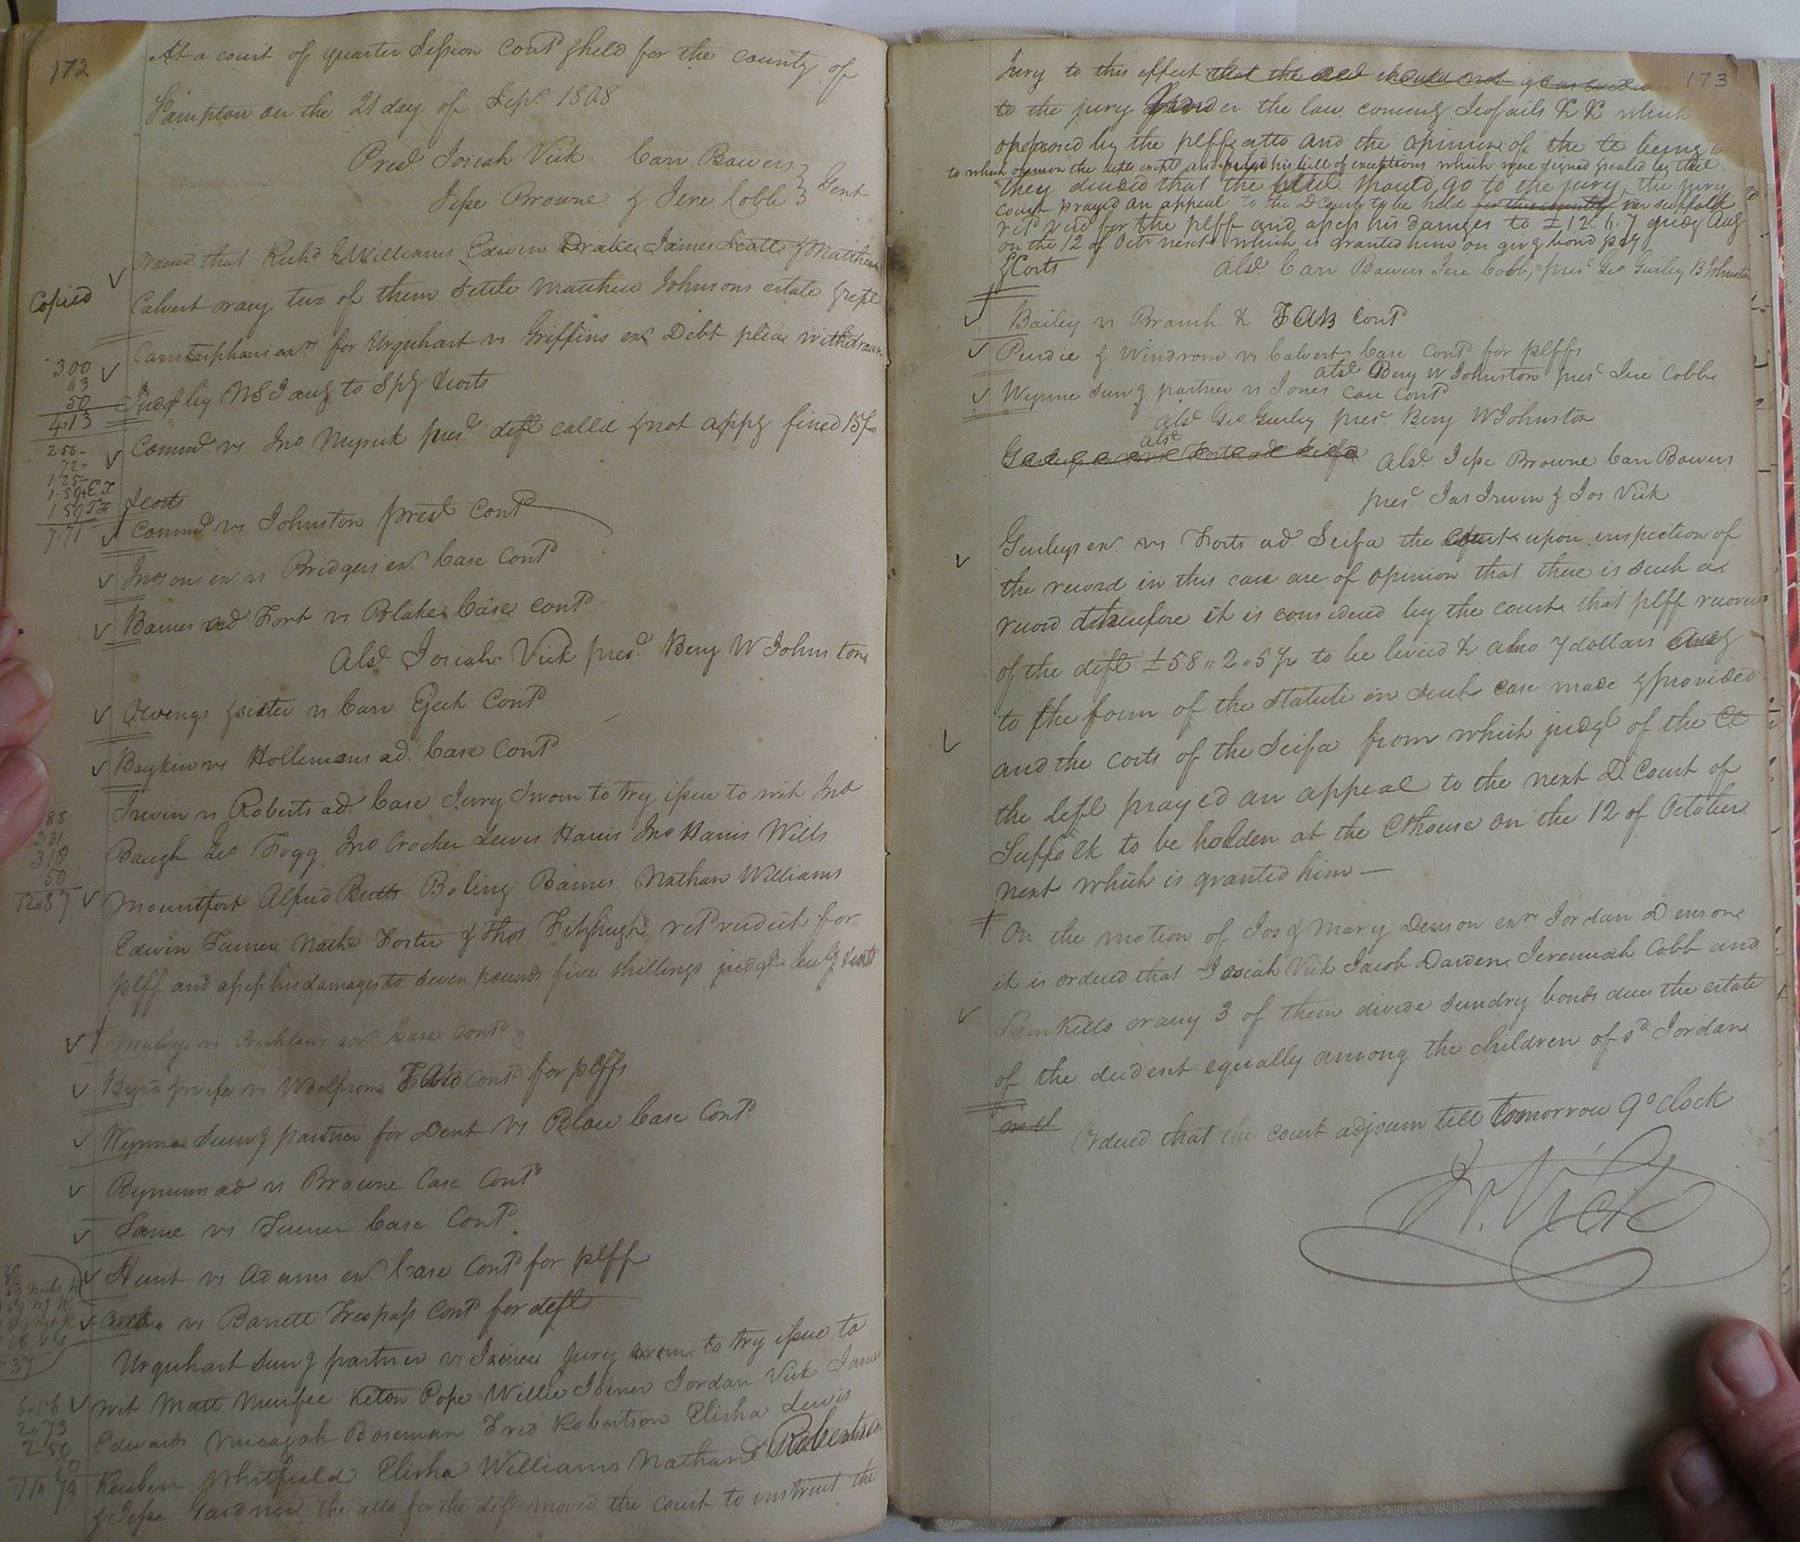 172
At a court of quarter Session contd & held for the county of
Hampton on the 21 day of Sepr 1808
Presd Josiah Vick Carr Bowers
Jesse Browne & Jere Cobb Gent
Ordered that Richd Williams Edwin Drake, James Scott & Matthew
Copied
Calvert or any two of them settle Matthew Johnsons estate & rept
300
63
50
4.13
Carstarphens exr for Urquhart vs Griffins exr Debt pleas withdrawn
Judgt by NSI aug to Spy & costs
Commd vs Jno Myrick presd deft calld & not appg fined 15/-
2.50
72
1.25
7.71
& costs
Commd vs Johnston presd Contd
exr vs Bridgers exr Case Contd
Barnes ad Fort vs Blake Case contd
Absd Josiah Vick presd Benj W Johnston
Owings & sister vs Carr Eject Contd
Boykin vs Hollemans ad. Case Contd
Irwin vs Roberts ad Case Jury Sworn to try issue to wit Jno
Baugh Geo Fogg Jno Crocker Lewis Harris Jno Harris Wills
Mountfort Alfred Butts Boling Barnes Nathan Williams
Edwin Turner Nathl Foster & Thos Fitzhugh, retd verdict for
plff and assess his damages to seven pounds five shillings judgt aug & costs
vs exr Case Contd
Byrd & wife vs Woolfrom TAB contd for plffs
Wynne Surv g partner for Dent vs Blow Case Contd
Bynum ad vs Browne Case Contd
Same vs Turner Case Contd
Hunt vs Adams exr Case Contd for plff
vs Barrett Trespass Contd for deft
Urquhart Surv g partner vs Jury sworn to try issue to
wit Matt Murfee Keton Pope Willie Joiner Jordan Vick James
Edwards Micajah Boseman Fred Robertson Elisha Lewis
Reuben Whitfield Elisha Williams Nathan Robertson
& Jesse Gardner the atto for the deft moved the court to instruct the
173
Jury to this effect that the should not
to the jury under the law concerng Jeofails &c &c which
opposed by the plffs atto and the opinion of the ct being
to which opinion the deft exceptd and his bill of exceptions which were signed & sealed by the
they decided that the should go to the jury, the jury
court prayed an appeal to the D Court to be held for this county in suffolk
retd verd for the plff and assess his damages to £12.6.7 judgt Aug
on the 12 of Octr next which is granted him on givg bond &c
& Costs
Absd Carr Bowers Jere Cobb, presd Geo Gurley B Johnston
Bailey vs Branch & TAB Contd
Purdie & Windrom vs Calvert Case Contd for plffs
absd Benj W Johnston presd Jere Cobb
Wynne Surv g partner vs Jones Case Contd
absd Geo Gurley presd Benj W Johnston
absd
Absd Jesse Browne Carr Bowers
presd Jas Irwin & Jos Vick
Gurleys exr vs Forts ad Scifa the court upon inspection of
the record in this case are of opinion that there is such a
record therefore it is considered by the court that plff recover
of the deft £58..2..5½ to be levied & also 7 dollars aug
to the form of the statute in such case made & provided
and the costs of the Scifa from which judgt of the Ct
the deft prayed an appeal to the next D. Court of
Suffolk to be holden at the Cthouse on the 12 of October
next which is granted him —
On the motion of Jos & Mary Denson exrs Jordan Denson
it is ordered that Josiah Vick Jacob Darden, Jeremiah Cobb and
or any 3 of them divide sundry bonds due the estate
of the decedent equally among the children of sd Jordan
Ordered that the court adjourn till tomorrow 9 oclock
J. Vick